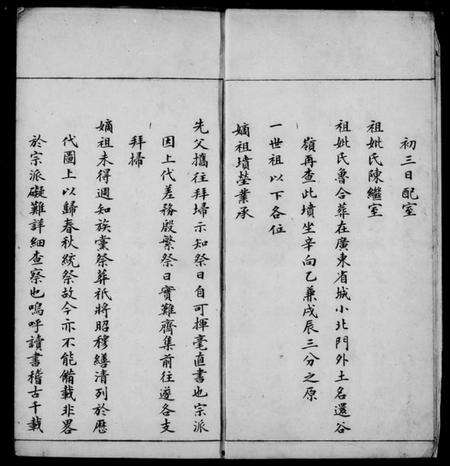 初三日配室
祖妣氏陳繼室
祖妣氏魯合葬在廣東省城小北門外土名還谷
嶺再查此墳坐辛向乙兼戌辰三分之原
一世祖以下各位
嫡祖墳塋業承
先父攜往拜埽示知祭日自可揮毫直書也宗派
因上代差務殷繁祭日實難齊集前往邀各支
拜掃
嫡祖未得週知族黨祭葬祇將昭穆繕清列於歷
代圖上以歸春秋統祭故今亦不能備載非畧
於宗派礙難詳細查察也嗚呼讀書稽古千載